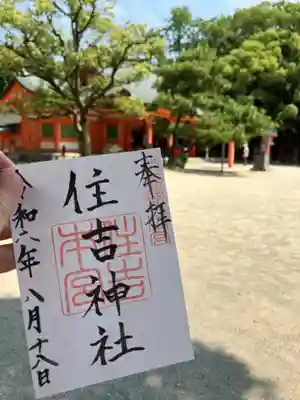 奉拝
住吉神社
住吉本宮
令和六年 八月十八日